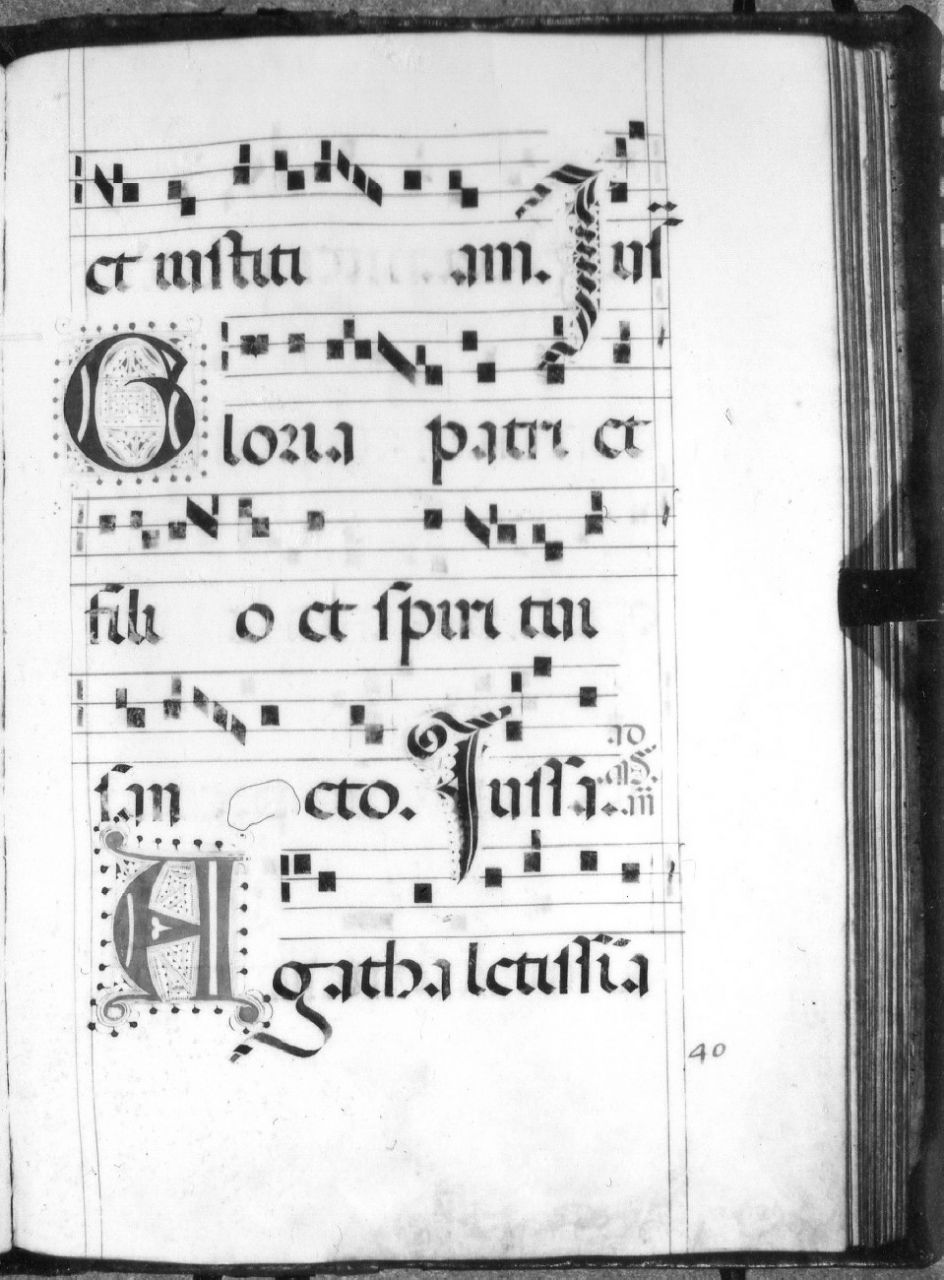 et iusticiam. Ius
Gloria patri et
filio et spiritui
sancto. Iussa. ad
Agatha letissia
40